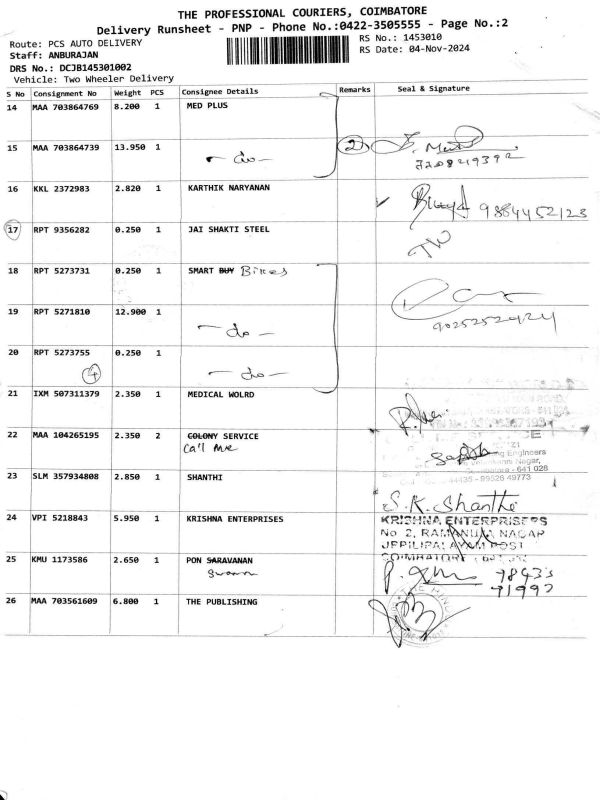 THE PROFESSIONAL COURIERS, COIMBATORE
Delivery Runsheet - PNP - Phone No.:0422-3505555 - Page No.:2
Route: PCS AUTO DELIVERY
RS No.: 1453010
Staff: ANBURAJAN
RS Date: 04-Nov-2024
DRS No.: DCJB145301002
Vehicle: Two Wheeler Delivery
S No Consignment No Weight PCS Consignee Details Remarks Seal & Signature
14 MAA 703864769 8.200 1 MED PLUS
15 MAA 703864739 13.950 1 - do - 2
16 KKL 2372983 2.820 1 KARTHIK NARYANAN 9884452123
17 RPT 9356282 0.250 1 JAI SHAKTI STEEL
18 RPT 5273731 0.250 1 SMART BUY Bikes
19 RPT 5271810 12.900 1 - do - 9025252924
20 RPT 5273755 0.250 1 - do -
4
21 IXM 507311379 2.350 1 MEDICAL WOLRD
22 MAA 104265195 2.350 2 COLONY SERVICE
Call Me
Engineers
Nagar,
- 641 028
44435 - 99526 49773
23 SLM 357934808 2.850 1 SHANTHI S.K. Shanthi
24 VPI 5218843 5.950 1 KRISHNA ENTERPRISES
KRISHNA ENTERPRISERS
No 2, RAMANUM NAGAR
POST
COIMBATORE
25 KMU 1173586 2.650 1 PON SARAVANAN
26 MAA 703561609 6.800 1 THE PUBLISHING